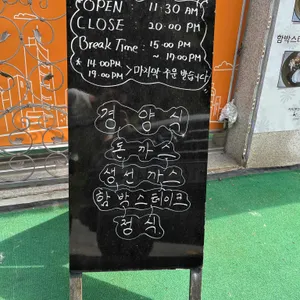 OPEN : 11:30 AM
CLOSE 20:00 PM
Break Time : 15:00 PM
~ 17:00 PM
* 14:00PM
19:00PM > 마지막 주문 받습니다
경 양 식
돈 까 스
생선 까스
함박스테이크
정식
함박스테